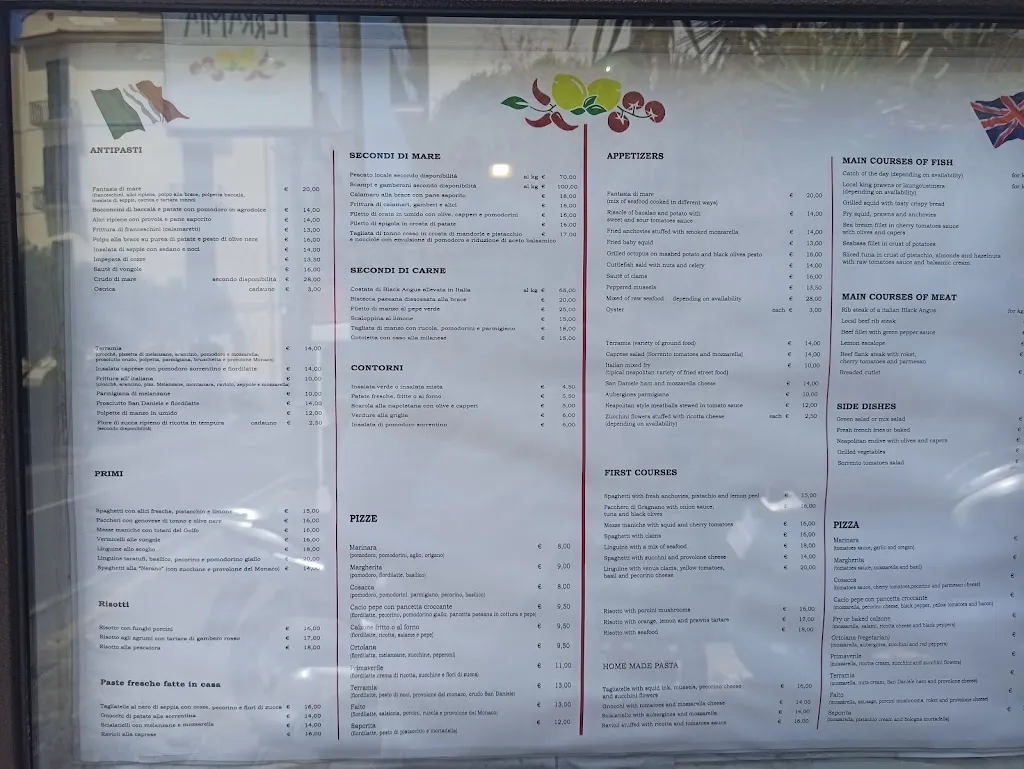 TERRAMIA
ANTIPASTI
Fantasia di mare € 20,00
(franceschini, alici ripiene, polpo alla brace, polpetta baccalà,
insalata di seppia, caprica e tartara tonno)
Bocconcini di baccalà e patate con pomodoro in agrodolce € 14,00
Alici ripiene con provola e pane saporito € 14,00
Frittura di franceschini (calamaretti) € 13,00
Polpo alla brace su purea di patate e pesto di olive nere € 16,00
Insalata di seppie con sedano e noci € 14,00
Impepata di cozze € 13,50
Sautè di vongole € 16,00
Crudo di mare secondo disponibilità € 28,00
Ostrica cadauno € 3,00
Terramia € 14,00
Insalata caprese con pomodoro sorrentino e fiordilatte € 14,00
Fritture all' italiana € 10,00
Parmigiana di melanzane € 10,00
Prosciutto San Daniele e fiordilatte € 14,00
Polpette di manzo in umido € 12,00
Fiore di zucca ripieno di ricotta in tempura cadauno € 2,50
(secondo disponibilità)
PRIMI
Spaghetti con alici fresche, pistacchio e limone € 15,00
Paccheri con genovese di tonno e olive nere € 16,00
Mezze maniche con totani del Golfo € 16,00
Vermicelli alle vongole € 16,00
Linguine allo scoglio € 18,00
Linguine taratufi, basilico, pecorino e pomodorino giallo € 20,00
Spaghetti alla "Nerano" (con zucchine e provolone del Monaco) € 14,00
Risotti
Risotto con funghi porcini € 16,00
Risotto agli agrumi con tartare di gambero rosso € 17,00
Risotto alla pescatora € 18,00
Paste fresche fatte in casa
Tagliatelle al nero di seppia con cozze, pecorino e fiori di zucca € 16,00
Gnocchi di patate alla sorrentina € 14,00
Scialatielli con melanzane e mozzarella € 14,00
Ravioli alla caprese € 16,00
SECONDI DI MARE
Pescato locale secondo disponibilità al kg € 70,00
Scampi e gamberoni secondo disponibilità al kg € 100,00
Calamaro alla brace con pane saporito € 18,00
Frittura di calamari, gamberi e alici € 16,00
Filetto di orata in umido con olive, capperi e pomodorini € 16,00
Filetto di spigola in crosta di patate € 16,00
Tagliata di tonno rosso in crosta di mandorle e pistacchio € 17,00
e nocciole con emulsione di pomodoro e riduzione di aceto balsamico
SECONDI DI CARNE
Costata di Black Angus allevata in Italia al kg € 65,00
Bistecca paesana diossosata alla brace € 20,00
Filetto di manzo al pepe verde € 25,00
Scaloppina al limone € 15,00
Tagliata di manzo con rucola, pomodorini e parmigiano € 18,00
Cotoletta con osso alla milanese € 15,00
CONTORNI
Insalata verde o insalata mista € 4,50
Patate fresche, fritte o al forno € 5,50
Scarola alla napoletana con olive e capperi € 5,00
Verdure alla griglia € 6,00
Insalata di pomodoro sorrentino € 6,00
PIZZE
Marinara € 8,00
(pomodoro, pomodorini, aglio, origano)
Margherita € 9,00
(pomodoro, fiordilatte, basilico)
Cosacca € 8,00
(pomodoro, pomodorini, parmigiano, pecorino, basilico)
Cacio pepe con pancetta croccante € 9,50
(fiordilatte, pecorino, pomodorino giallo, pancetta passana in cottura e pepe)
Calzone fritto o al forno € 9,50
(fiordilatte, ricotta, salame e pepe)
Ortolana € 9,50
(fiordilatte, melanzane, zucchine, peperoni)
Primaverile € 11,00
(fiordilatte crema di ricotta, zucchine e fiori di zucca)
Terramia € 13,00
(fiordilatte, pesto di noci, provolone del monaco, crudo San Daniele)
Faito € 13,00
(fiordilatte, salsiccia, porcini, rucola e provolone del Monaco)
Saporita € 12,00
(fiordilatte, pesto di pistacchio e mortadella)
APPETIZERS
Fantasia di mare € 20,00
(mix of seafood cooked in different ways)
Rissole of bacalao and potato with € 14,00
sweet and sour tomatoes sauce
Fried anchovies stuffed with smoked mozzarella € 14,00
Fried baby squid € 13,00
Grilled octopus on mashed potato and black olives pesto € 16,00
Cuttlefish salad with nuts and celery € 14,00
Sautè of clams € 16,00
Peppered mussels € 13,50
Mixed of raw seafood depending on availability € 28,00
Oyster each € 3,00
Terramia (variety of ground food) € 14,00
Caprese salad (Sorrento tomatoes and mozzarella) € 14,00
Italian mixed fry € 10,00
(tipical neapolitan variety of fried street food)
San Daniele ham and mozzarella cheese € 14,00
Aubergines parmigiana € 10,00
Neapolitan style meatballs stewed in tomato sauce € 12,00
Zucchini flowers stuffed with ricotta cheese each € 2,50
(depending on availability)
FIRST COURSES
Spaghetti with fresh anchovies, pistachio and lemon peel € 15,00
Pacchero di Gragnano with onion sauce, € 16,00
tuna and black olives
Mezze maniche with squid and cherry tomatoes € 16,00
Spaghetti with clams € 16,00
Linguine with a mix of seafood € 18,00
Spaghetti with zucchini and provolone cheese € 14,00
Linguine with venus clams, yellow tomatoes, € 20,00
basil and pecorino cheese
Risotto with porcini mushrooms € 16,00
Risotto with orange, lemon and prawns tartare € 17,00
Risotto with seafood € 18,00
HOME MADE PASTA
Tagliatelle with squid ink, mussels, pecorino cheese € 16,00
and zucchini flowers
Gnocchi with tomatoes and mozzarella cheese € 14,00
Scialatielli with aubergines and mozzarella € 14,00
Ravioli stuffed with ricotta and tomatoes sauce € 16,00
MAIN COURSES OF FISH
Catch of the day (depending on availability) for k
Local king prawns or laungoustinera for k
(depending on availability)
Grilled squid with tasty crispy bread
Fry squid, prawns and anchovies
Sea bream fillet in cherry tomatoes sauce
with olives and capers
Seabass fillet in crust of potatoes
Sliced tuna in crust of pistachio, almonds and hazelnuts
with raw tomatoes sauce and balsamic cream
MAIN COURSES OF MEAT
Rib steak of a Italian Black Angus for kg
Local beef rib steak
Beef fillet with green pepper sauce
Lemon escalope
Beef flank steak with roket,
cherry tomatoes and parmesan
Breaded cutlet
SIDE DISHES
Green salad or mix salad
Fresh french fries or baked
Neapolitan endive with olives and capers
Grilled vegetables
Sorrento tomatoes salad
PIZZA
Marinara €
(tomatoes sauce, garlic and oregan)
Margherita €
(tomatoes sauce, mozzarella and basil)
Cosacca €
(tomatoes sauce, cherry tomatoes, pecorino and parmesan cheese)
Cacio pepe con pancetta croccante €
(mozzarella, pecorino cheese, black pepper, yellow tomatoes and bacon)
Fry or baked calzone €
(mozzarella, salami, ricotta cheese and black peppers)
Ortolana (vegetarian) €
(mozzarella, aubergines, zucchini and red peppers)
Primaverile €
(mozzarella, ricotta cream, zucchini and zucchini flowers)
Terramia €
(mozzarella, nuts cream, San Daniele ham and provolone cheese)
Faito €
(mozzarella, sausage, porcini mushrooms, roket and provolone cheese)
Saporita €
(mozzarella, pistachio cream and bologna mortadella)